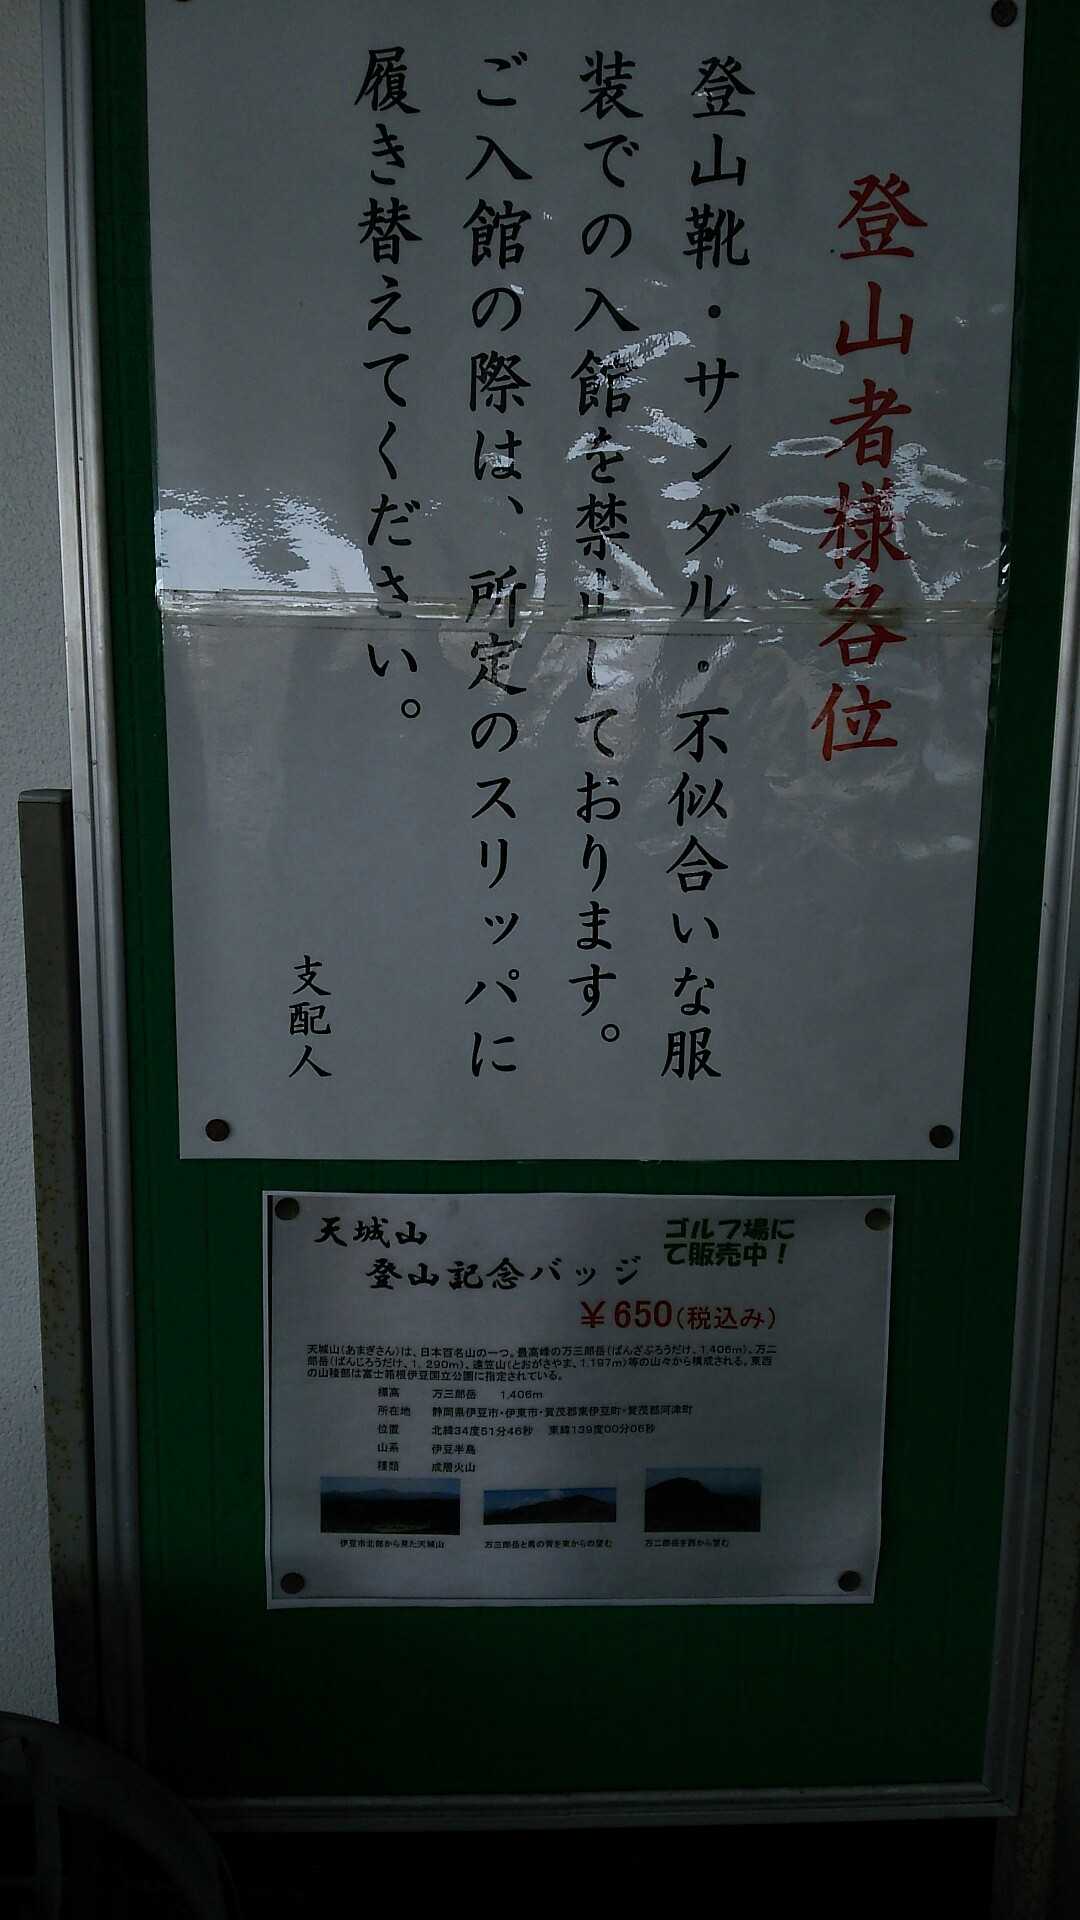 登山者様各位
登山靴・サンダル・不似合いな服
装での入館を禁止しております。
ご入館の際は、所定のスリッパに
履き替えてください。
支配人
天城山
登山記念バッジ
ゴルフ場に
て販売中！
￥650(税込み)
天城山(あまぎさん)は、日本百名山の一つ。最高峰の万三郎岳(ばんざぶろうだけ、1,406m)、万二
郎岳(ばんじろうだけ、1,290m)、遠笠山(とおがさやま、1,197m)等の山々から構成される。東西
の山稜部は富士箱根伊豆国立公園に指定されている。
標高 万三郎岳 1,406m
所在地 静岡県伊豆市・伊東市・賀茂郡東伊豆町・賀茂郡河津町
位置 北緯34度51分46秒 東緯139度00分06秒
山系 伊豆半島
種類 成層火山
伊豆市北部から見た天城山
万三郎岳と馬の背を東からの望む
万二郎岳を西から望む